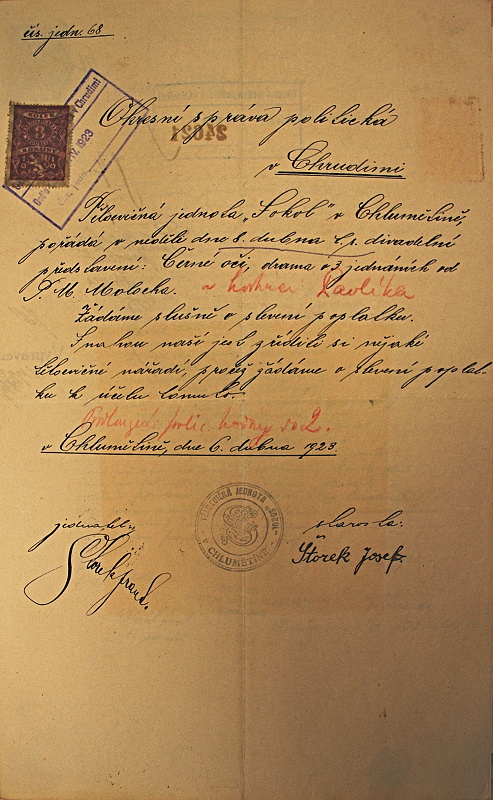 čís. jedn. 68
v Chrudimi
IV. 1923
KOLEK
3
KORUNY
24621
Okresní správa politická
v Chrudimi
Tělocvičná jednota „Sokol" v Chlumětíně,
pořádá v neděli dne 8. dubna t. r. divadelní
představení: Černé oči, drama o 3 jednáních od
P. M. Malocha. v hostinci Pavlíka
Žádáme slušně o slevení poplatku.
Snahou naší jest zříditi si nějaké
tělocvičné nářadí, pročež žádáme o slevení poplat-
ku k účelu tomuto.
hodiny do 2.
v Chlumětíně, dne 6. dubna 1923.
jednatel:
starosta:
TĚLOCVIČNÁ JEDNOTA „SOKOL"
V CHLUMĚTÍNĚ
Štorek Josef.